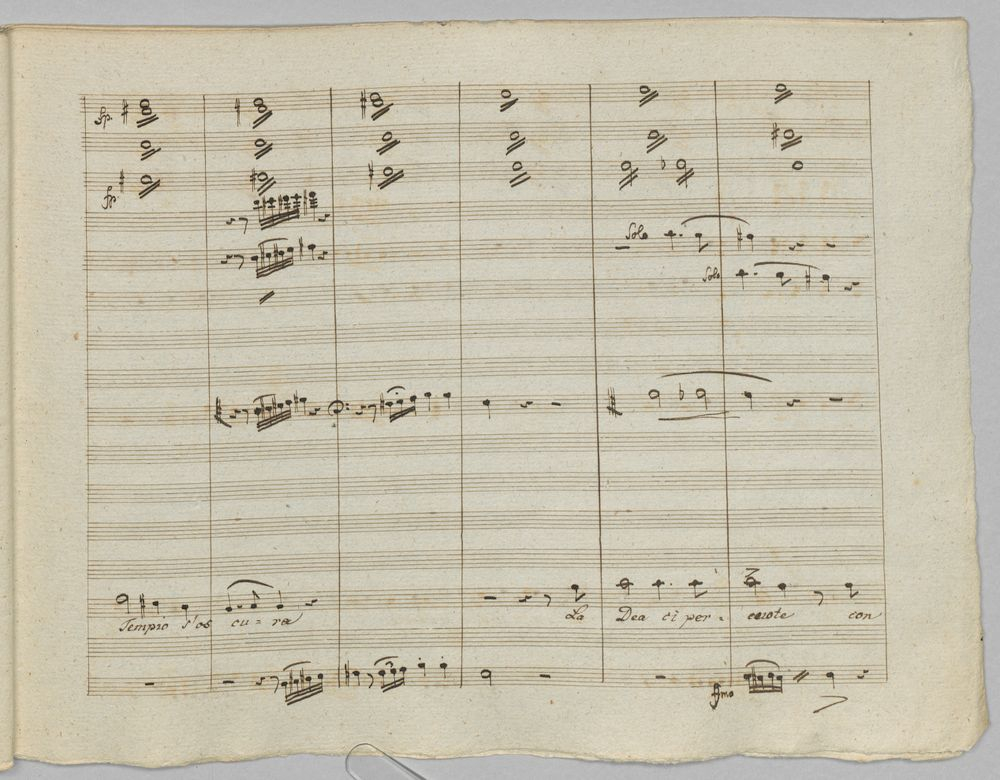 fp.
fp
Solo
Solo
Tempio s'os cu = ra La Dea ci per = cuote con
ffmo